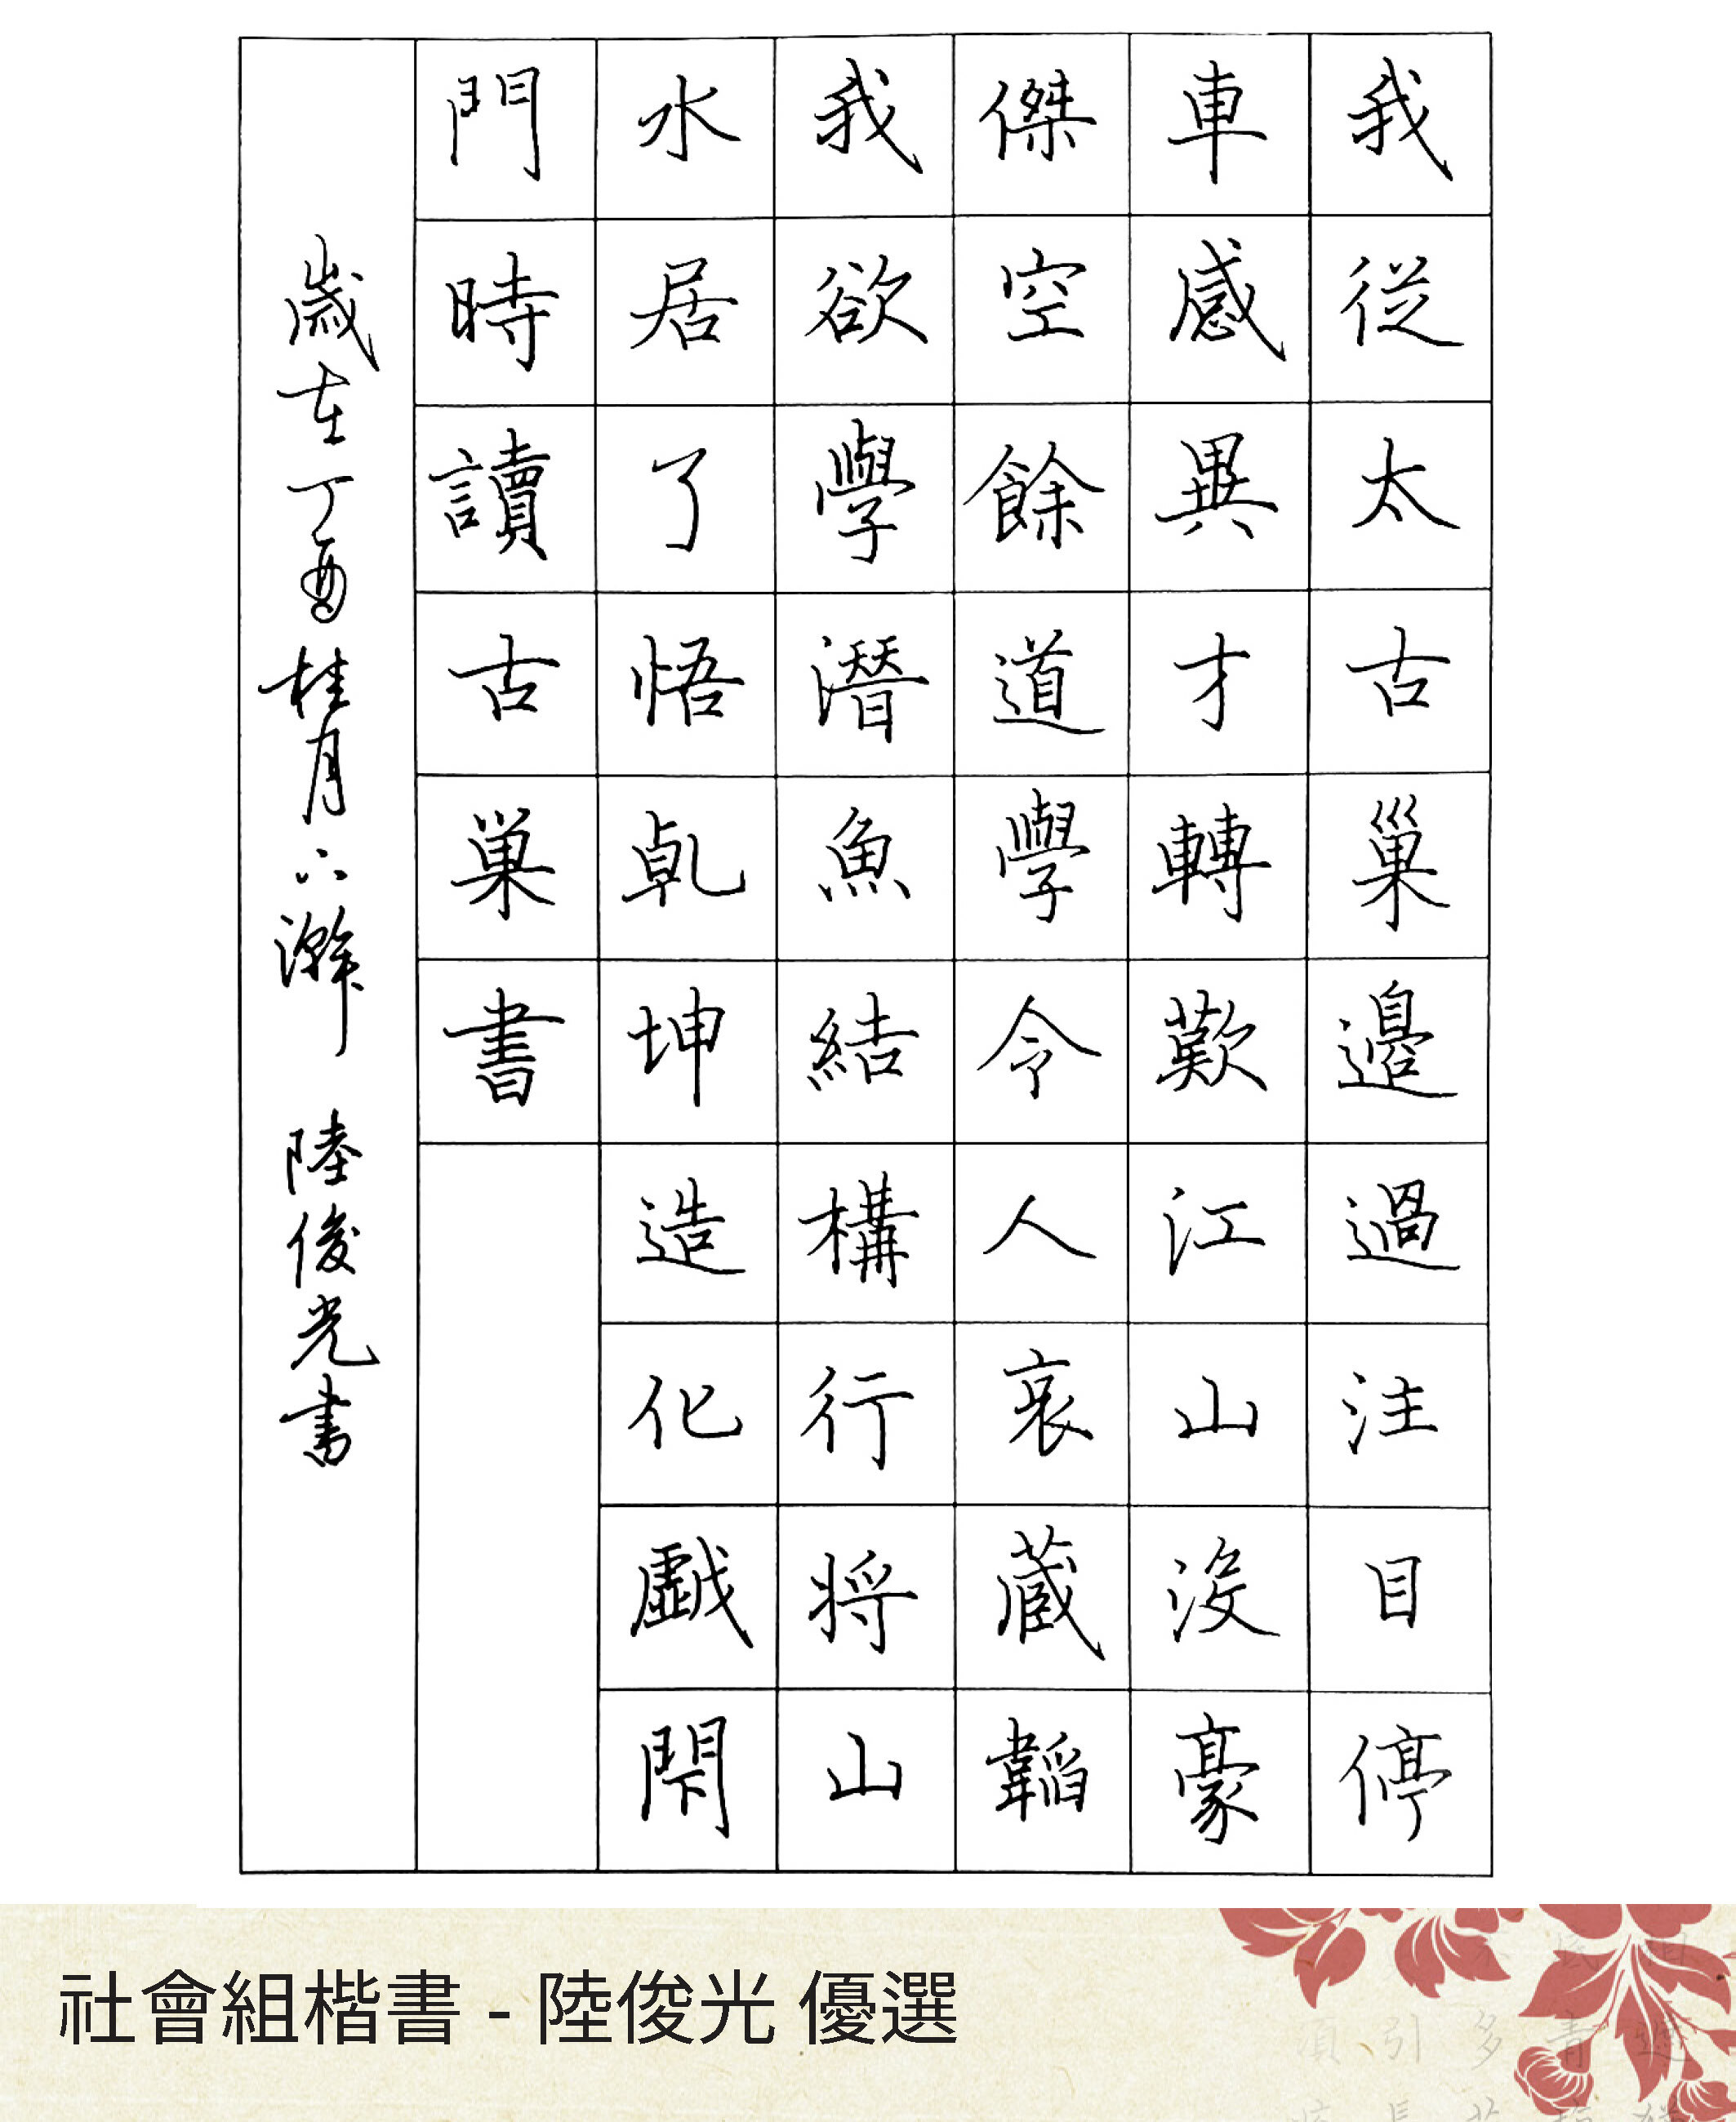 我從太古巢邊過注目停
車感異才轉歎江山沒豪
傑空餘道學令人哀藏韜
我欲學潛魚結構行將山
水居了悟乾坤造化戲閑
門時讀古巢書
歲在丁酉桂月下澣 陸俊光書
社會組楷書 - 陸俊光 優選